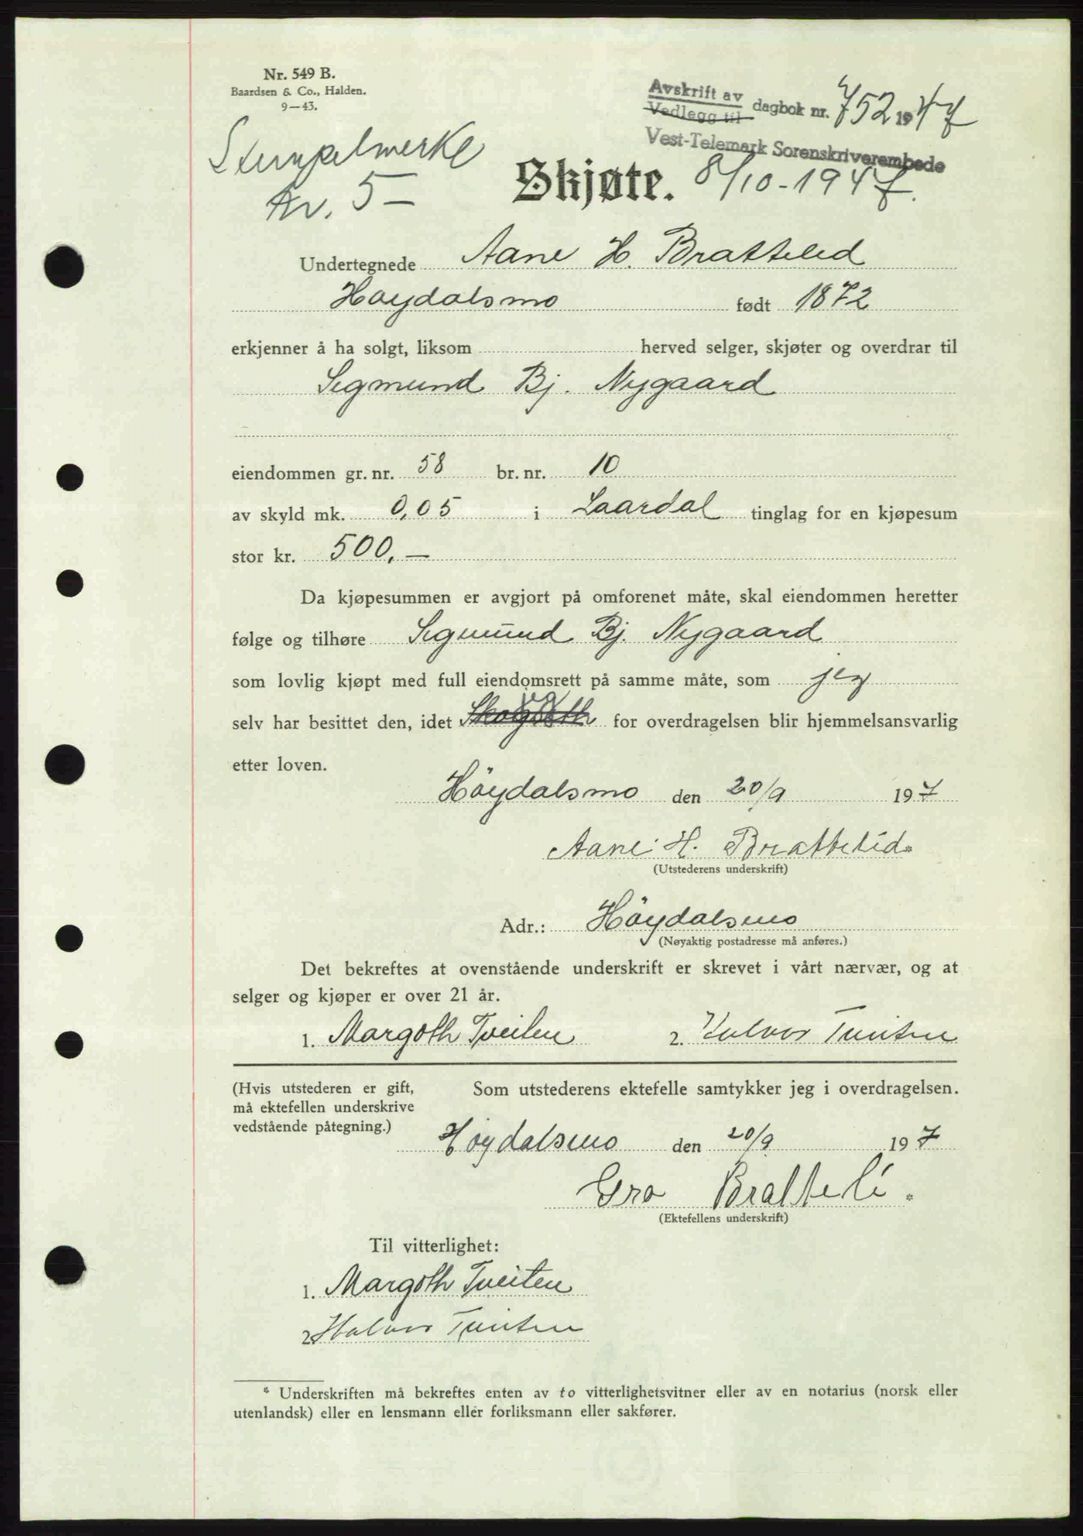 Nr. 549 B.
Baardsen & Co., Halden.
9—43.
Avskrift av
Vedlegg til dagbok nr. 752 1947
Vest-Telemark Sorenskriverembede
Stempelmerke
kr. 5-
Skjøte. 8/10-1947.
Undertegnede Aane H. Brattelid
Høydalsmo født 1872
erkjenner å ha solgt, liksom herved selger, skjøter og overdrar til
Sigmund Bj. Nygaard
eiendommen gr. nr. 58 br. nr. 10
av skyld mk. 0,05 i Laardal tinglag for en kjøpesum
stor kr. 500,—
Da kjøpesummen er avgjort på omforenet måte, skal eiendommen heretter
følge og tilhøre Sigmund Bj. Nygaard
som lovlig kjøpt med full eiendomsrett på samme måte, som jeg
selv har besittet den, idet for overdragelsen blir hjemmelsansvarlig
etter loven.
Höydalsmo den 20/9 1947
Aane H. Brattelid*
(Utstederens underskrift)
Adr.: Höydalsmo
(Nøyaktig postadresse må anføres.)
Det bekreftes at ovenstående underskrift er skrevet i vårt nærvær, og at
selger og kjøper er over 21 år.
1. Margoth Tveiten 2. Halvor Tveiten
(Hvis utstederen er gift, Som utstederens ektefelle samtykker jeg i overdragelsen.
må ektefellen underskrive
vedstående påtegning.)
Höydalsmo den 20/9 197
Gro Bratteli *
(Ektefellens underskrift)
Til vitterlighet:
1. Margoth Tveiten
2. Halvor Tveiten
* Underskriften må bekreftes enten av to vitterlighetsvitner eller av en notarius (norsk eller
utenlandsk) eller en lensmann eller forliksmann eller sakfører.